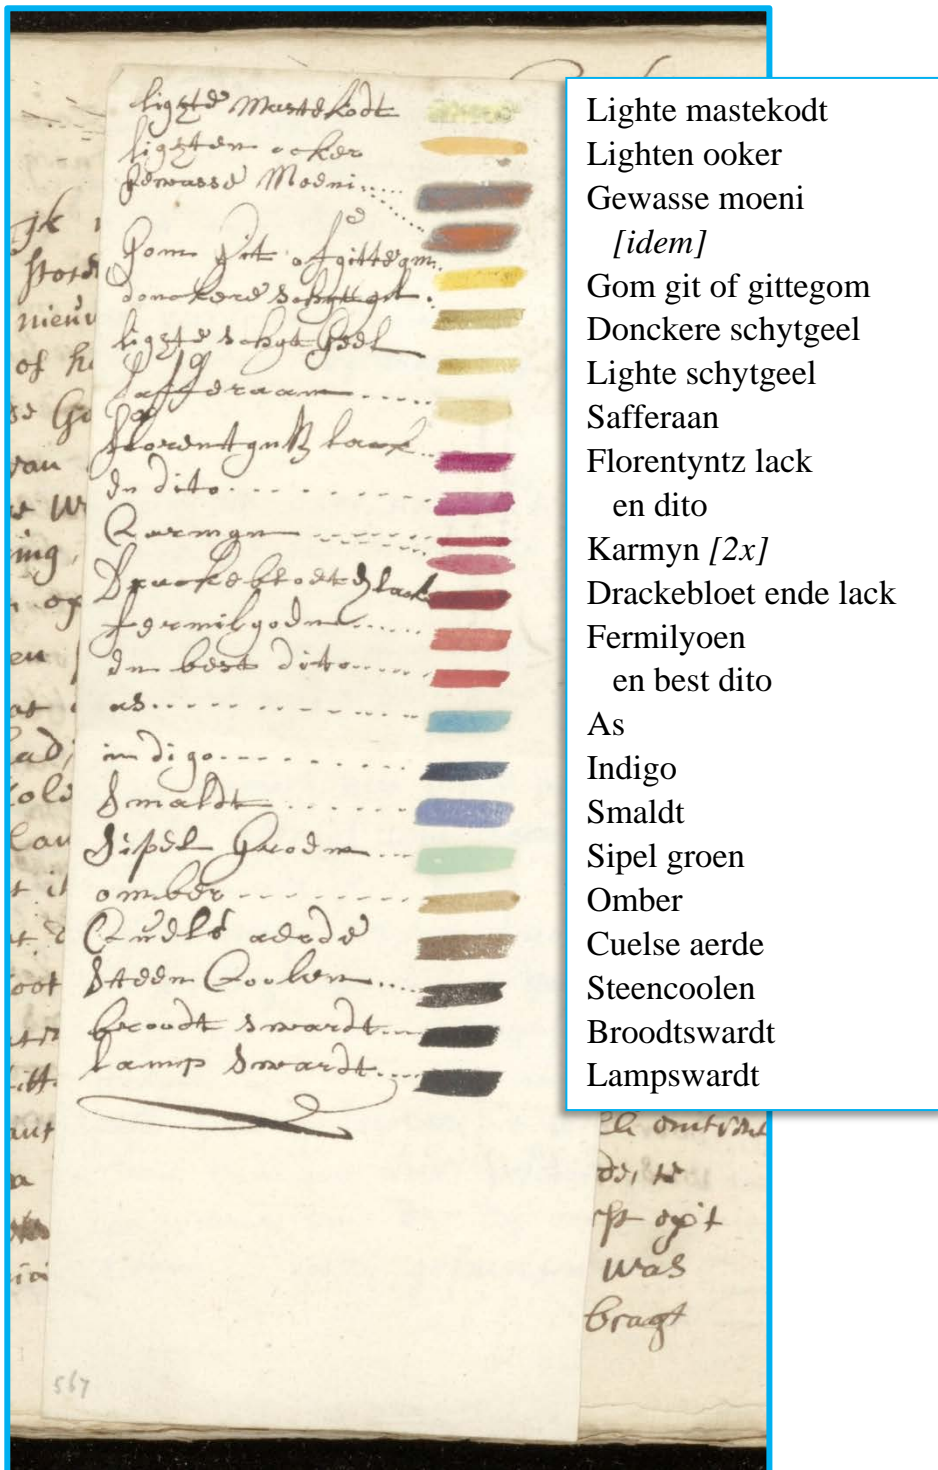 lighte Mastekodt
lighten ooker
Gewasse Moeni
Gom Git of gittegom
donckere schytgel
lighte schyt Geel
Safferaan
Florentyntz lack
en dito
Karmyn
Drackebloet end lack
fermilyoen
en best dito
as
indigo
Smaldt
Sipel Groen
omber
Cuelse aerde
Steen Coolen
broodt swardt
lamp swardt
567
Lighte mastekodt
Lighten ooker
Gewasse moeni
[idem]
Gom git of gittegom
Donckere schytgeel
Lighte schytgeel
Safferaan
Florentyntz lack
en dito
Karmyn [2x]
Drackebloet ende lack
Fermilyoen
en best dito
As
Indigo
Smaldt
Sipel groen
Omber
Cuelse aerde
Steencoolen
Broodtswardt
Lampswardt
was
bragt